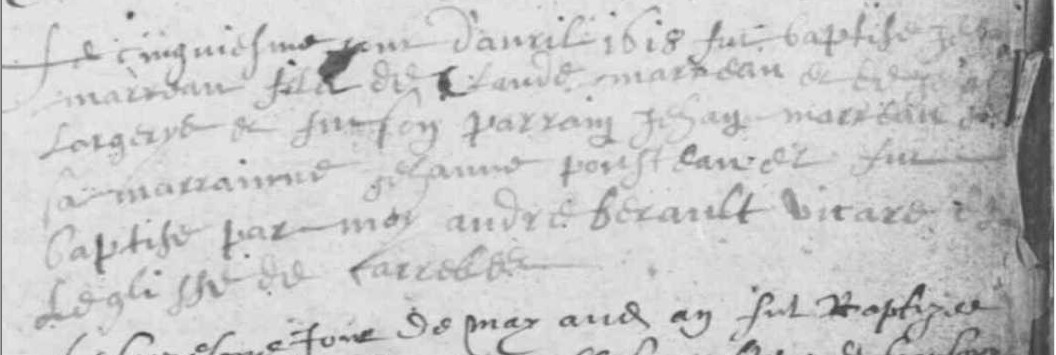 Le cinquiesme jour d'auril 1618 fut baptise Jeha
marreau filz de Claude marreau et de
Lorgerye et fut son parrain Jehan marreau et
sa marrainne Jehanne pousteau et fut
baptise par moy andre berault vicare de
Leglisse de
jour de may aud an fut Baptizee